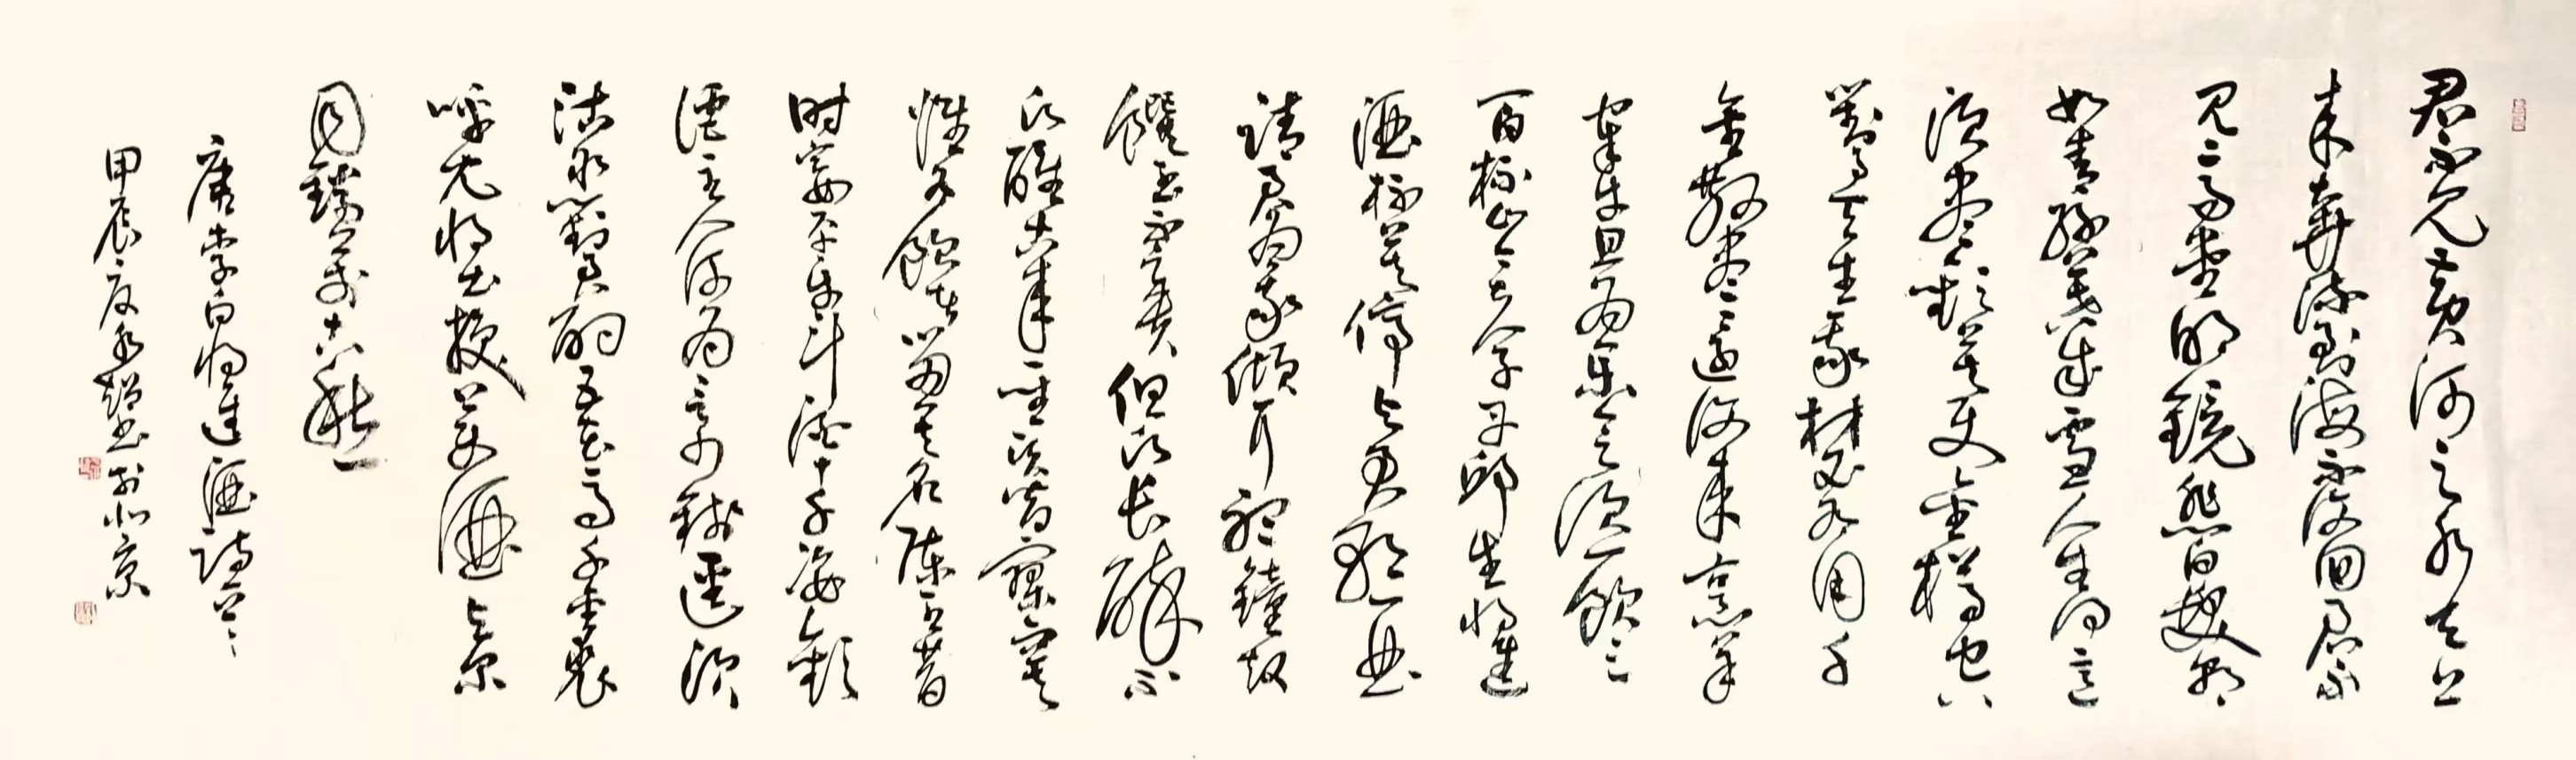 君不見黃河之水天上
來奔流到海不復回君不
見高堂明鏡悲白髮朝
如青絲暮成雪人生得意
須盡歡莫使金樽空
對月天生我材必有用千
金散盡還復來烹羊
宰牛且為樂會須一飲三
百杯岑夫子丹邱生將進
酒杯莫停與君歌一曲
請君為我傾耳聽鐘鼓
饌玉不足貴但願長醉不
願醒古來聖賢皆寂寞
惟有飲者留其名陳王昔
時宴平樂斗酒十千恣歡
謔主人何為言少錢徑須
沽取對君酌五花馬千金裘
呼兒將出換美酒與爾
同銷萬古愁
唐李白將進酒詩
甲辰夏永超書於北京